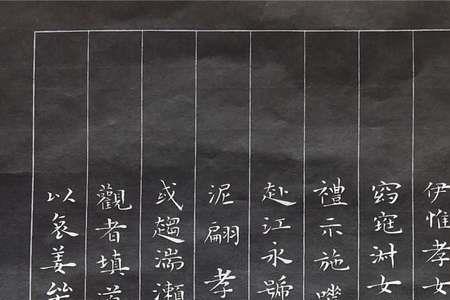 伊惟孝女
窈窕淑女
禮示施嗟
赴江永號
泥翩孝
或趨湍瀨
觀者填道
以哀姜